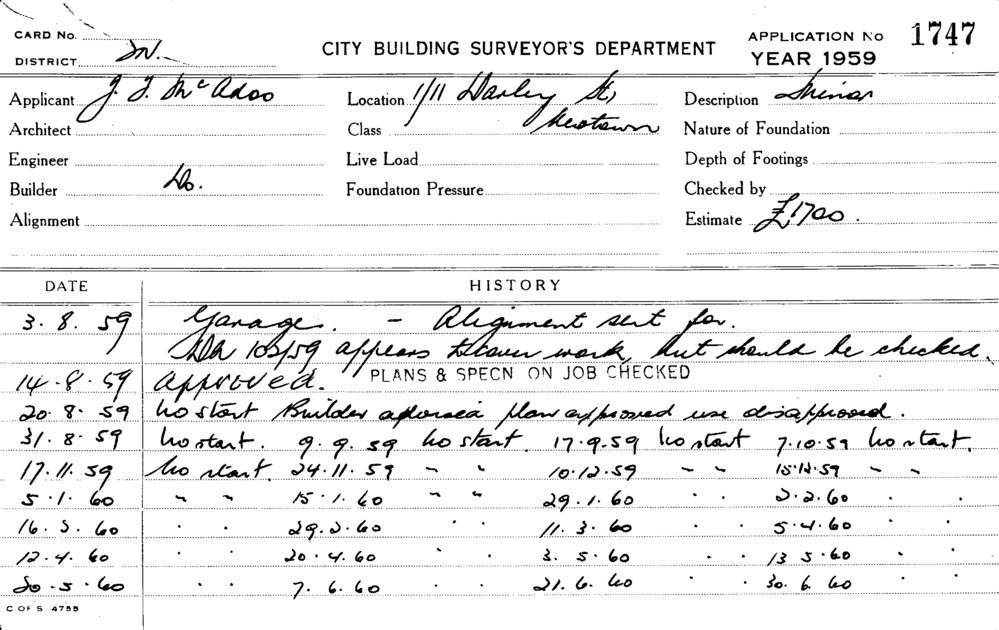 CARD No.
DISTRICT
CITY BUILDING SURVEYOR'S DEPARTMENT
APPLICATION No 1747
YEAR 1959
Applicant J. J. McAdoo Location 1/11 Darley St, Description Minor
Architect Class Newtown Nature of Foundation
Engineer Live Load Depth of Footings
Builder Do. Foundation Pressure Checked by
Alignment Estimate £1700.
DATE HISTORY
3. 8. 59 Garage. - Alignment sent for.
DA 102/59 appears to cover work, but should be checked.
14. 8. 59 Approved. PLANS & SPECN ON JOB CHECKED
20. 8. 59 No start Builder advised plan approved use disapproved.
31. 8. 59 No start. 9. 9. 59 No start. 17.9.59 No start 7.10.59 No start.
17. 11. 59 No start. 24.11.59 " " 10.12.59 " " 15.12.59 " "
5. 1. 60 " " 15. 1. 60 " " 29. 1. 60 " " 2. 60 " "
16. 60 " " 29. 2. 60 " " 11. 3. 60 " " 5. 4. 60 " "
12. 4. 60 " " 20. 4. 60 " " 3. 5. 60 " " 13 5. 60 " "
5. 60 " " 7. 6. 60 " " 21. 6. 60 " " 30. 6 60 " "
C OF S 475B